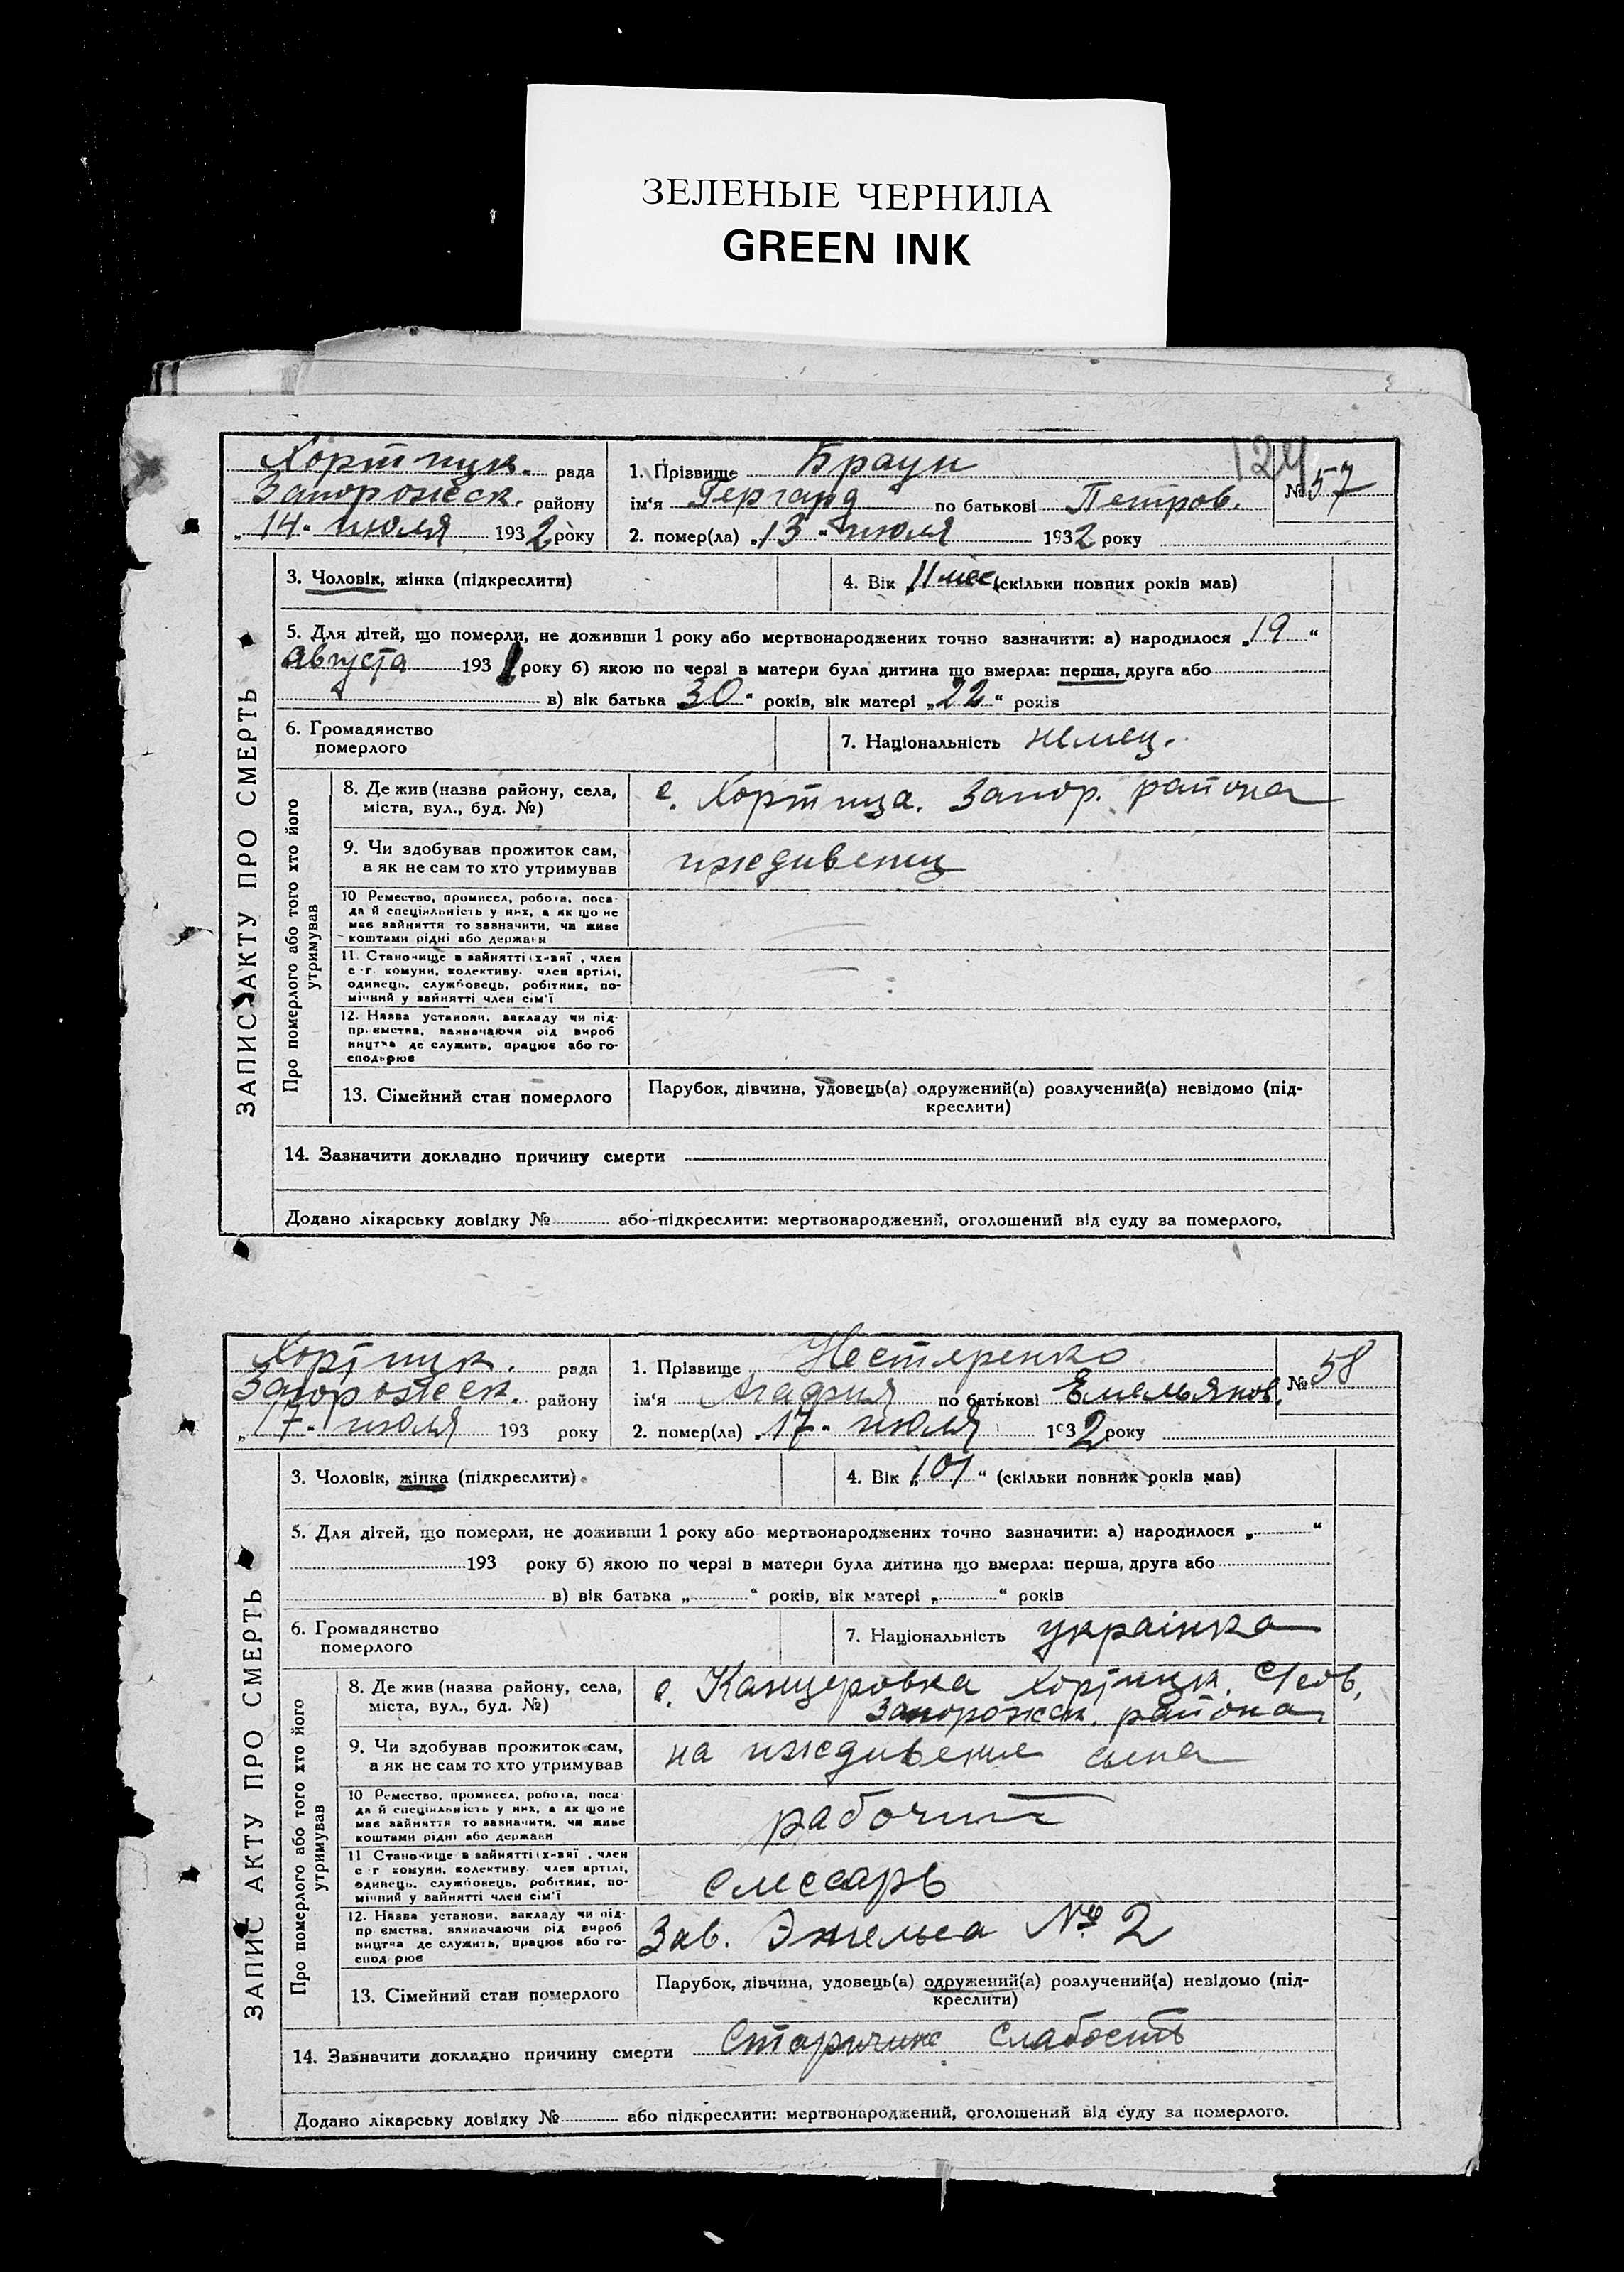 ЗЕЛЕНЫЕ ЧЕРНИЛА
GREEN INK
124
Хортицк. рада
Запорожск. района
„14“ июля 1932 року
1. Прізвище Браун
ім‘я Гергард по батькові Петров.
2. помер(ла) „13“ июля 1932 року
№ 57
ЗАПИС АКТУ ПРО СМЕРТЬ
3. Чоловік, жінка (підкреслити)
4. Вік „11 мес (скільки повних років мав)
5. Для дітей, що померли, не доживши 1 року або мертвонароджених точно зазначити: а) народилося „19“
августа 1931 року б) якою по черзі в матери була дитина що вмерла: перша, друга або
в) вік батька 30“ років, вік матері „22“ років
6. Громадянство
померлого
7. Національність немец.
Про померлого або того хто його
утримував
8. Де жив (назва району, села,
міста, вул., буд. №)
с. Хортица. Запор. района
9. Чи здобував прожиток сам,
а як не сам то хто утримував
иждивенец
10 Ремество, промисел, робота, поса-
да й спеціяльність у них, а як що не
має зайняття то зазначити, чи живе
коштами рідні або держави
11. Становище в зайнятті х-вяї, член
с-г. комуни, колективу. член артілі,
одинець, службовець, робітник, по-
мічний у зайнятті член сім‘ї
12. Назва установи, закладу чи під-
приємства, зазначаючи рід вироб
ництва де служить, працює або го-
сподарює
13. Сімейний стан померлого
Парубок, дівчина, удовець(а) одружений(а) розлучений(а) невідомо (під-
креслити)
14. Зазначити докладно причину смерти
Додано лікарську довідку № або підкреслити: мертвонароджений, оголошений від суду за померлого.
Хортицк. рада
Запорожск. району
„17“ июля 193 року
1. Прізвище Нестяренко
ім‘я Агафия по батькові Емельянов.
2. помер(ла) „17“ июля 1932 року
№ 58
ЗАПИС АКТУ ПРО СМЕРТЬ
3. Чоловік, жінка (підкреслити)
4. Вік „101“ (скільки повних років мав)
5. Для дітей, що померли, не доживши 1 року або мертвонароджених точно зазначити: а) народилося „ “
193 року б) якою по черзі в матери була дитина що вмерла: перша, друга або
в) вік батька „ “ років, вік матері „ “ років
6. Громадянство
померлого
7. Національність українка
Про померлого або того хто його
утримував
8. Де жив (назва району, села,
міста, вул., буд. №)
с. Канцеровка Хортицк. с/сов,
Запорожск. района
9. Чи здобував прожиток сам,
а як не сам то хто утримував
на иждивение сына
10 Ремество, промисел, робота, поса-
да й спеціяльність у них, а як що не
має зайняття то зазначити, чи живе
коштами рідні або держави
рабочий
11 Становище в зайнятті х-вяї, член
с-г комуни, колективу. член артілі,
одинець, службовець, робітник, по-
мічний у зайнятті член сім‘ї
слесарь
12. Назва установи, закладу чи під-
приємства, зазначаючи рід вироб
ництва де служить, працює або го-
сподарює
Зав. Энгельса № 2
13. Сімейний стан померлого
Парубок, дівчина, удовець(а) одружений(а) розлучений(а) невідомо (під-
креслити)
14. Зазначити докладно причину смерти Старичине Слабость
Додано лікарську довідку № або підкреслити: мертвонароджений, оголошений від суду за померлого.